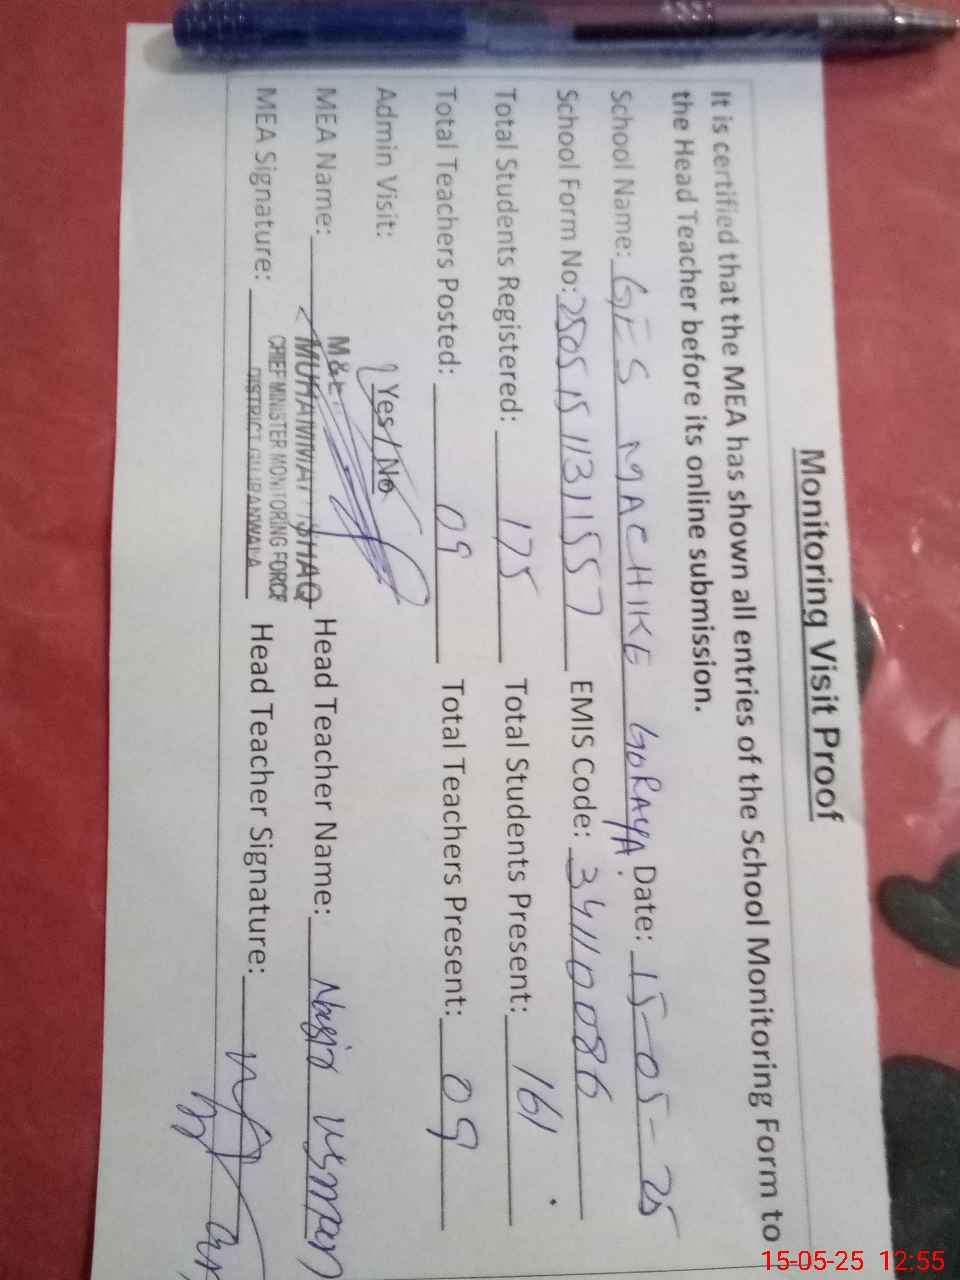 Monitoring Visit Proof
It is certified that the MEA has shown all entries of the School Monitoring Form to
the Head Teacher before its online submission.
School Name: GES MACHIKE GORAYA Date: 15-05-25
School Form No: 2505151131157 EMIS Code: 34110086
Total Students Registered: 175 Total Students Present: 161
Total Teachers Posted: 09 Total Teachers Present: 09
Admin Visit: Yes/No
M&E
MEA Name: MUHAMMAD ISHAQ Head Teacher Name: Nasir Usman
CHIEF MINISTER MONITORING FORCE
MEA Signature: DISTRICT GUJRANWALA Head Teacher Signature:
15-05-25 12:55